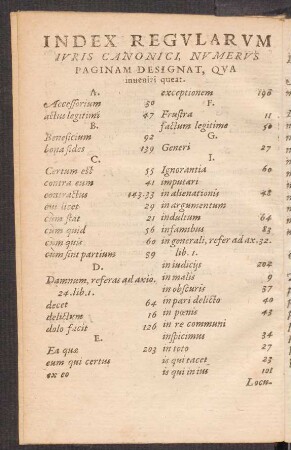 INDEX REGVLARVM
IVRIS CANONICI, NVMERVS
PAGINAM DESIGNAT, QVA
inueniri queat.
A.
Accessorium 50
actus legitimi 47
B.
Beneficium 92
bona fides 139
C.
Certum est 55
contra eum 41
contractus 143.33
cui licet 29
cum stat 21
cum quid 56
cum quis 60
cum sint partium 89
D.
Damnum, referas ad axio.
24.lib.1.
decet 64
delictum 16
dolo facit 126
E.
Ea quæ 203
eum qui certus
ex eo
exceptionem 198
F.
Frustra 11
factum legitime 50
G.
Generi 27
I.
Ignorantia 60
imputari
in alienationis 48
in argumentum
indultum 64
infamibus 83
in generali, refer ad ax. 32.
lib. 1.
in iudicijs 202
in malis 9
in obscuris 37
in pari delicto 40
in pœnis 43
in re communi
inspicimus 34
in toto 27
is qui tacet 23
is qui in ius 101
Locu-